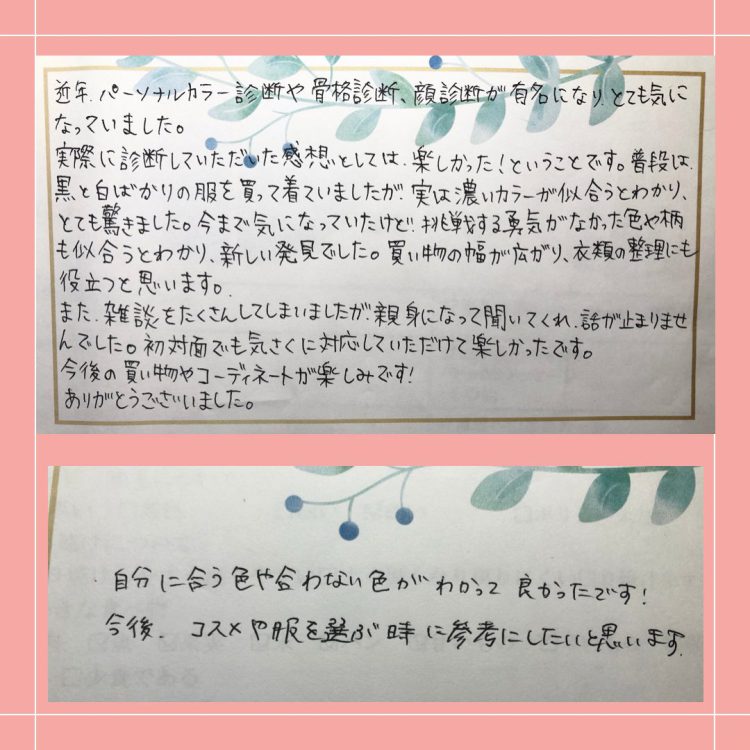 近年、パーソナルカラー診断や骨格診断、顔診断が有名になり、とても気に
なっていました。
実際に診断していただいた感想としては、楽しかった！ということです。普段は、
黒と白ばかりの服を買って着ていましたが、実は濃いカラーが似合うとわかり、
とても驚きました。今まで気になっていたけど、挑戦する勇気がなかった色や柄
も似合うとわかり、新しい発見でした。買い物の幅が広がり、衣類の整理にも
役立つと思います。
また、雑談をたくさんしてしまいましたが、親身になって聞いてくれ、話が止まりませ
んでした。初対面でも気さくに対応していただけて楽しかったです。
今後の買い物やコーディネートが楽しみです！
ありがとうございました。
自分に合う色や合わない色がわかって良かったです！
今後、コスメや服を選ぶ時に参考にしたいと思います。